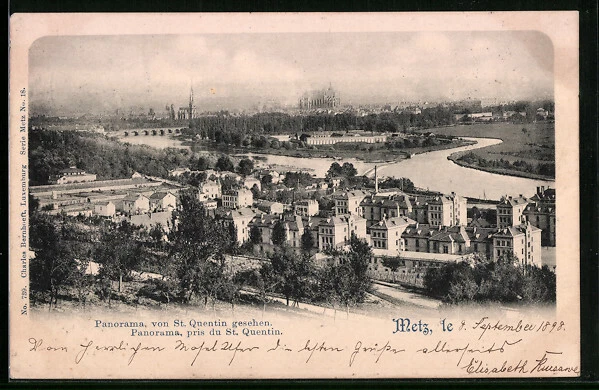 No. 739. Charles Bernhoeft, Luxemburg Serie Metz No. 18.
Panorama, von St. Quentin gesehen.
Panorama, pris du St. Quentin.
Metz, le 9. September 1898.
Vom herrlichen Moselufer die besten Grüße allerseits
Elisabeth